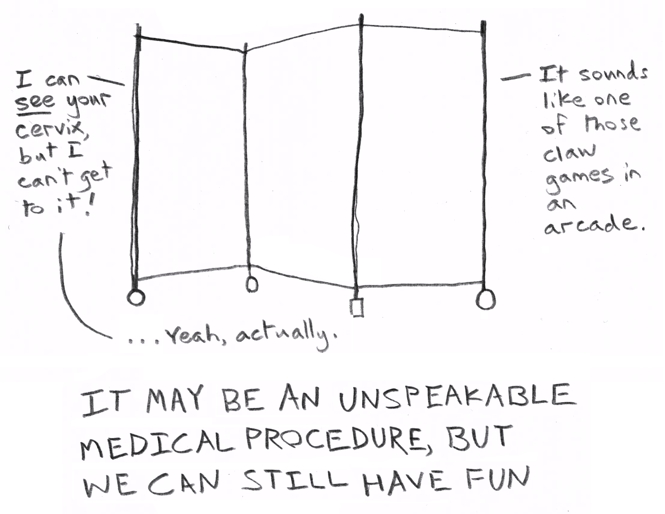 I can
see your
cervix,
but I
can't get
to it!
It sounds
like one
of those
claw
games in
an
arcade.
...Yeah, actually.
IT MAY BE AN UNSPEAKABLE
MEDICAL PROCEDURE, BUT
WE CAN STILL HAVE FUN